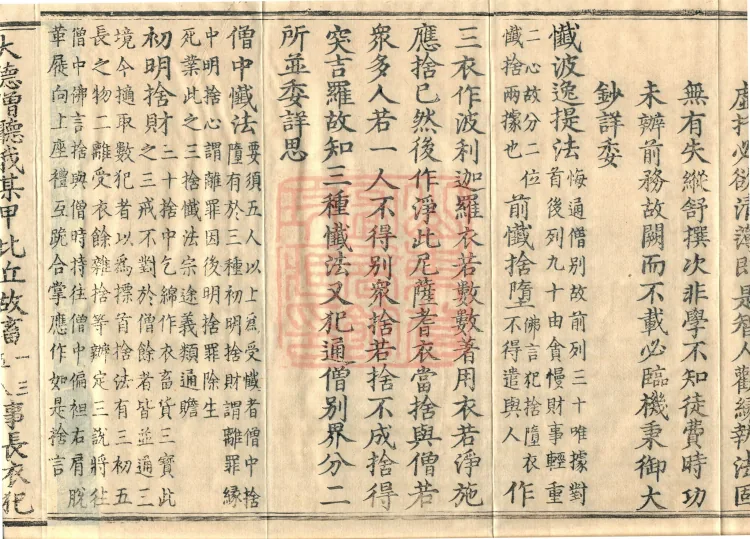 必欲清蕩即是智人觀緣執法固
無有失縱舒撰次非學不知徒費時功
未辨前務故闕而不載必臨機秉御大
鈔詳委
懺波逸提法
悔通僧別故前列三十唯據對
首後列九十由貪慢財事輕重
二心故分二位
懺捨兩據也
前懺捨墮
佛言犯捨墮衣
不得遣與人
作
三衣作波利迦羅衣若數數著用衣若淨施
應捨已然後作淨此尼薩耆衣當捨與僧若
衆多人若一人不得別衆捨若捨不成捨得
突吉羅故知三種懺法又犯通僧別界分二
所並委詳思
僧中懺法
要須五人以上爲受懺者僧中捨
墮有於三種初明捨財謂離罪緣
中明捨心謂離罪因後明捨罪除生
死業此之三捨懺法宗途義類通贍
初明捨財
二十捨中乞綿作衣畜貨三寶此
之三戒不對於僧餘者皆並通三
境今摘取數犯者以爲標首捨法有三初五
長之物二離受衣餘雜捨等辦定三說將往
僧中佛言捨與僧時持往僧中偏袒右肩脫
革屣向上座禮互跪合掌應作如是捨言
大德僧聽我某甲比丘故畜
事長衣犯